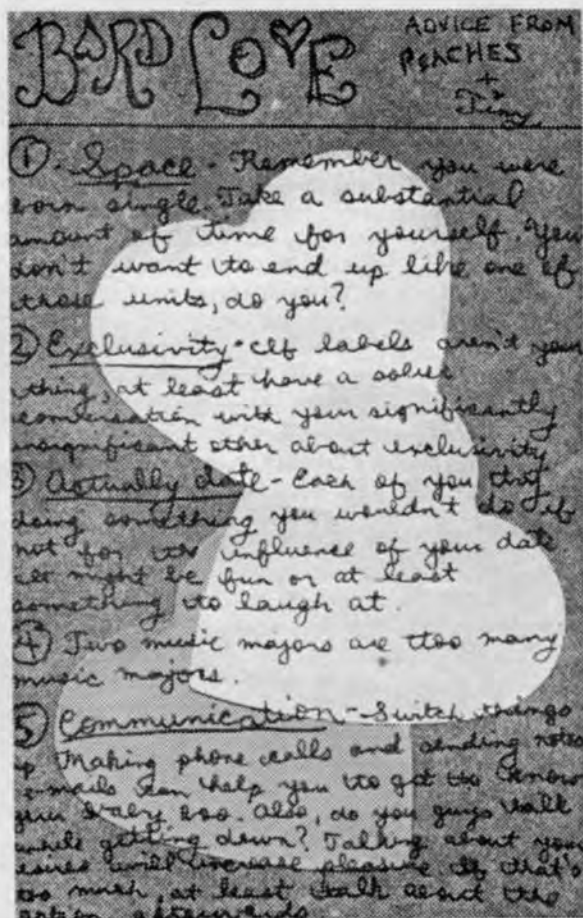 BARD LOVE
ADVICE FROM
PEACHES
+
Tiny
① . Space - Remember you were
born single. Take a substantial
amount of time for yourself. You
don't want to end up like one of
those units, do you?
② Exclusivity - If labels aren't your
thing, at least have a sober
conversation with your significantly
insignificant other about exclusivity
③ Actually date - Each of you try
doing something you wouldn't do if
not for the influence of your date
it might be fun or at least
something to laugh at.
④ Two music majors are too many
music majors.
⑤ Communication - Switch things
up Making phone calls and sending notes
e-mails can help you to get to know
your baby boo. Also, do you guys talk
while getting down? Talking about your
desires will increase pleasure. If that's
too much at least talk about the
action afterwards